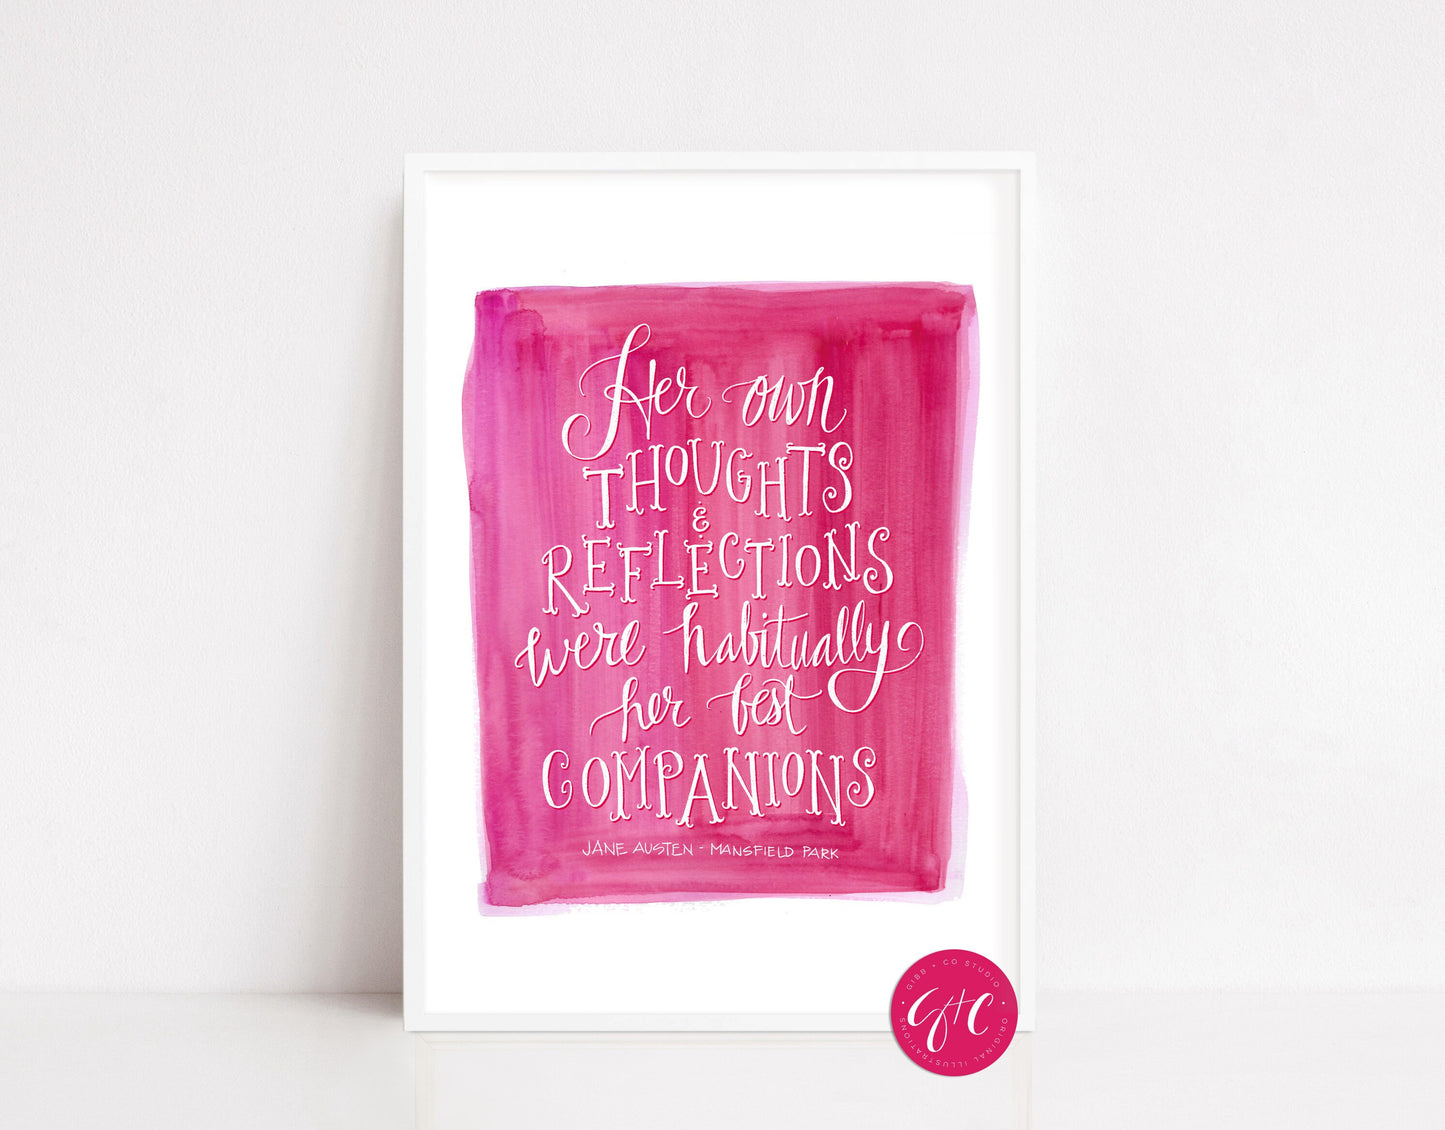 Her own
THOUGHTS
&
REFLECTIONS
were habitually
her best
COMPANIONS
JANE AUSTEN - MANSFIELD PARK
GIBB + CO STUDIO
G+C
ORIGINAL ILLUSTRATIONS